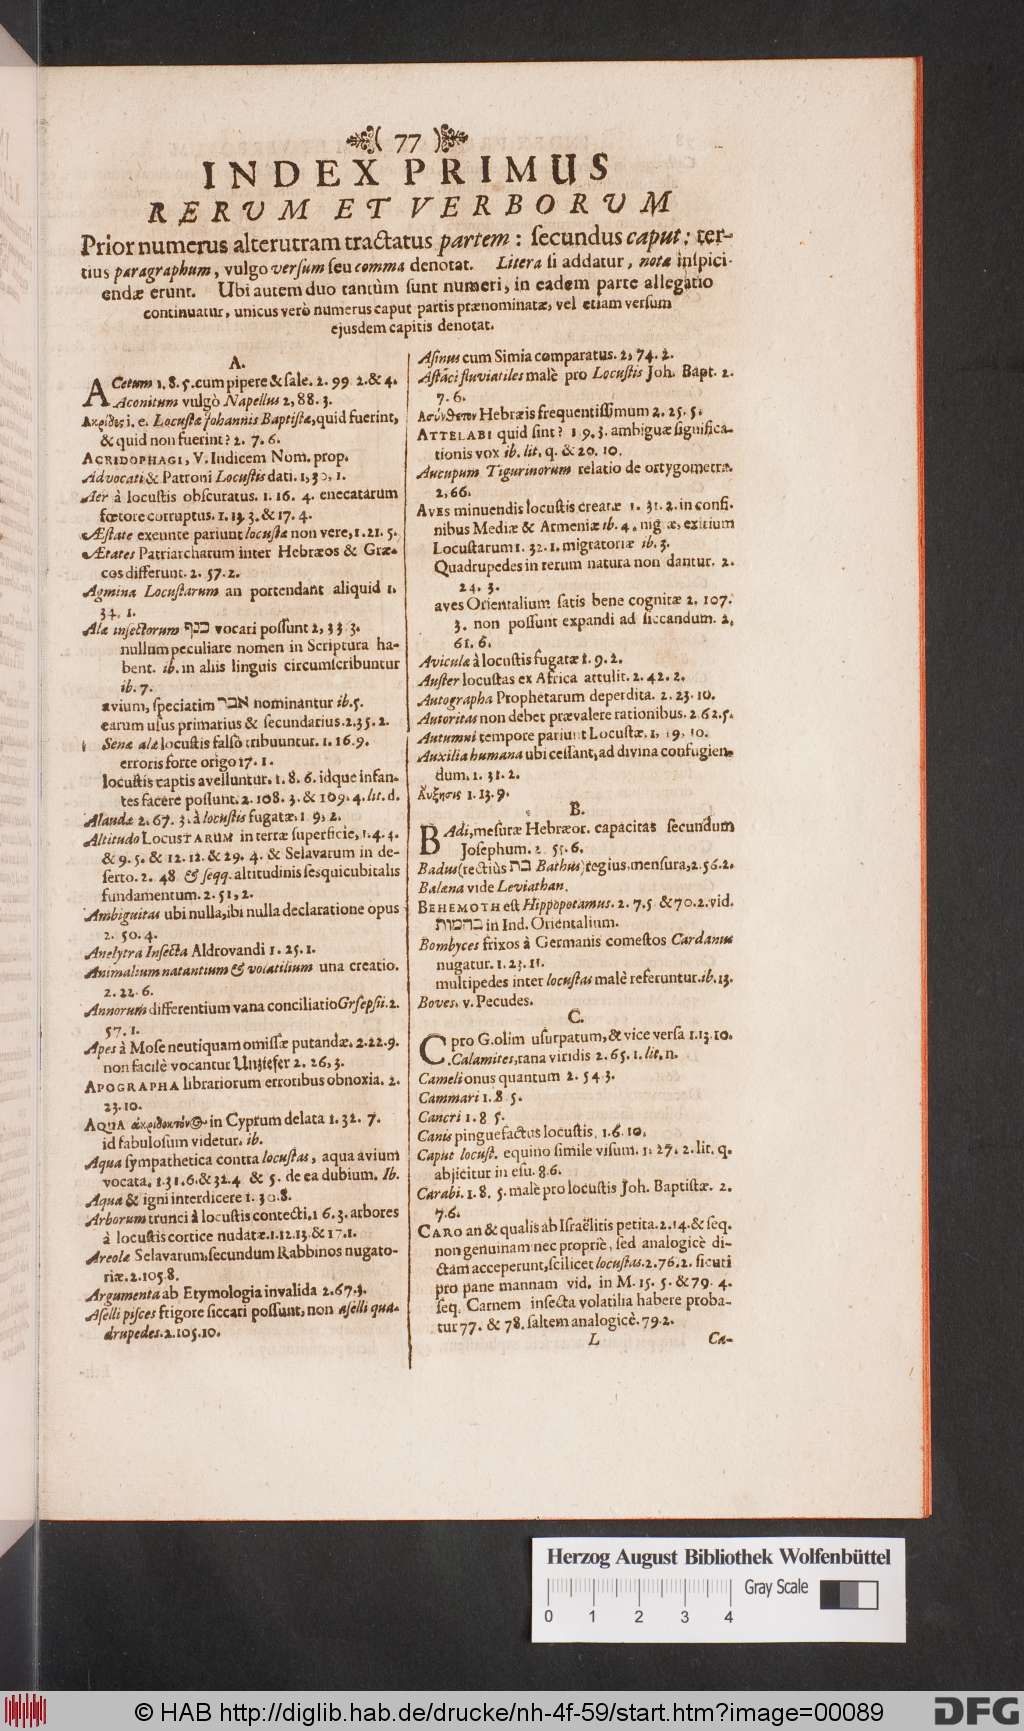 ( 77 )
INDEX PRIMUS
RERUM ET VERBORUM
Prior numerus alterutram tractatus partem : secundus caput ; ter-
tius paragraphum, vulgo versum seu comma denotat. Litera si addatur, notæ inspici-
endæ erunt. Ubi autem duo tantùm sunt numeri, in eadem parte allegatio
continuatur, unicus verò numerus caput partis prænominatæ, vel etiam versum
ejusdem capitis denotat.
A.
ACetum 1. 8. 5. cum pipere & sale. 2. 99 2. & 4.
Aconitum vulgò Napellus 2, 88. 3.
Ακρίδες i. e. Locustæ Johannis Baptistæ, quid fuerint,
& quid non fuerint? 2. 7. 6.
ACRIDOPHAGI, V. Indicem Nom. prop.
Advocati & Patroni Locustis dati. 1, 30, 1.
Aer à locustis obscuratus. 1. 16. 4. enecatarum
fœtore corruptus. 1. 13. 3. & 17. 4.
Æstate exeunte pariunt locustæ non vere, 1. 21. 5.
Ætates Patriarcharum inter Hebræos & Græ-
cos differunt. 2. 57. 2.
Agmina Locustarum an portendant aliquid 1.
34. 1.
Alæ insectorum כנף vocari possunt 2, 33 3.
nullum peculiare nomen in Scriptura ha-
bent. ib. in aliis linguis circumscribuntur
ib. 7.
avium, speciatim אבר nominantur ib. 5.
earum usus primarius & secundarius. 2. 35. 2.
Senæ alæ locustis falsò tribuuntur. 1. 16. 9.
erroris forte origo 17. 1.
locustis captis avelluntur. 1. 8. 6. idque infan-
tes facere possunt. 2. 108. 3. & 109. 4. lit. d.
Alaudæ 2. 67. 3. à locustis fugatæ, 1 9, 2.
Altitudo LOCUSTARUM in terræ superficie, 1. 4. 4.
& 9. 5. & 12. 12. & 29. 4. & Selavarum in de-
serto. 2. 48 & seqq. altitudinis sesquicubitalis
fundamentum. 2. 51, 2.
Ambiguitas ubi nulla, ibi nulla declaratione opus
2. 50. 4.
Anelytra Insecta Aldrovandi 1. 25. 1.
Animalium natantium & volatilium una creatio.
2. 22. 6.
Annorum differentium vana conciliatio Grsepsii. 2.
57. 1.
Apes à Mose neutiquam omissæ putandæ. 2. 22. 9.
non facilè vocantur Unziefer 2. 26, 3.
APOGRAPHA librariorum erroribus obnoxia. 2.
23. 10.
AQUA in Cyprum delata 1. 32. 7.
id fabulosum videtur. ib.
Aqua sympathetica contra locustas, aqua avium
vocata. 1. 31. 6. & 32. 4 & 5. de ea dubium. Ib.
Aqua & igni interdicere 1. 30. 8.
Arborum trunci à locustis contecti, 1 6. 3. arbores
à locustis cortice nudatæ. 1. 12. 13. & 17. 1.
Areolæ Selavarum, secundum Rabbinos nugato-
riæ. 2. 105. 8.
Argumenta ab Etymologia invalida 2. 67. 3.
Aselli pisces frigore siccari possunt, non aselli qua-
drupedes. 2. 105. 10.
Asinus cum Simia comparatus. 2, 74. 2.
Astaci fluviatiles malè pro Locustis Joh. Bapt. 2.
7. 6.
Ασύνδετον Hebræis frequentissimum 2. 25. 5.
ATTELABI quid sint? 1 9. 3. ambiguæ significa-
tionis vox ib. lit. q. & 20. 10.
Aucupum Tigurinorum relatio de ortygometra.
2, 66.
AVES minuendis locustis creatæ 1. 31. 2. in confi-
nibus Mediæ & Armeniæ ib. 4. nigræ, exitium
Locustarum 1. 32. 1. migratoriæ ib. 3.
Quadrupedes in rerum natura non dantur. 2.
24. 3.
aves Orientalium satis bene cognitæ 2. 107.
3. non possunt expandi ad siccandum. 2,
61. 6.
Aviculæ à locustis fugatæ 1. 9. 2.
Auster locustas ex Africa attulit. 2. 42. 2.
Autographa Prophetarum deperdita. 2. 23. 10.
Autoritas non debet prævalere rationibus. 2. 62. 5.
Autumni tempore pariunt Locustæ. 1, 19, 10.
Auxilia humana ubi cessant, ad divina confugien-
dum. 1. 31. 2.
Αὔξησις 1. 13. 9.
B.
BAdi, mesuræ Hebræor. capacitas secundùm
Josephum. 2. 55. 6.
Badus (rectiùs בת Bathus) regius. mensura, 2. 56. 2.
Balæna vide Leviathan.
BEHEMOTH est Hippopotamus. 2. 7. 5 & 70. 2. vid.
בהמות in Ind. Orientalium.
Bombyces frixos à Germanis comestos Cardanus
nugatur. 1. 23. 11.
multipedes inter locustas malè referuntur. ib. 13.
Boves. v. Pecudes.
C.
C pro G. olim usurpatum, & vice versa 1. 13. 10.
Calamites, rana viridis 2. 65. 1. lit. n.
Cameli onus quantum 2. 54. 3.
Cammari 1. 8 5.
Cancri 1. 8 5.
Canis pinguefactus locustis. 1. 6. 10.
Caput locust. equino simile visum. 1. 27. 2. lit. q.
abjicitur in esu. 8. 6.
Carabi. 1. 8. 5. malè pro locustis Joh. Baptistæ. 2.
7. 6.
CARO an & qualis ab Israëlitis petita. 2. 14. & seq.
non genuinam nec propriè, sed analogicè di-
ctam acceperunt, scilicet locustas. 2. 76. 2. sicuti
pro pane mannam vid. in M. 15. 5. & 79. 4.
seq. Carnem insecta volatilia habere proba-
tur 77. & 78. saltem analogicè. 79. 2.
L Ca-
Herzog August Bibliothek Wolfenbüttel
Gray Scale
0 1 2 3 4
© HAB http://diglib.hab.de/drucke/nh-4f-59/start.htm?image=00089
DFG